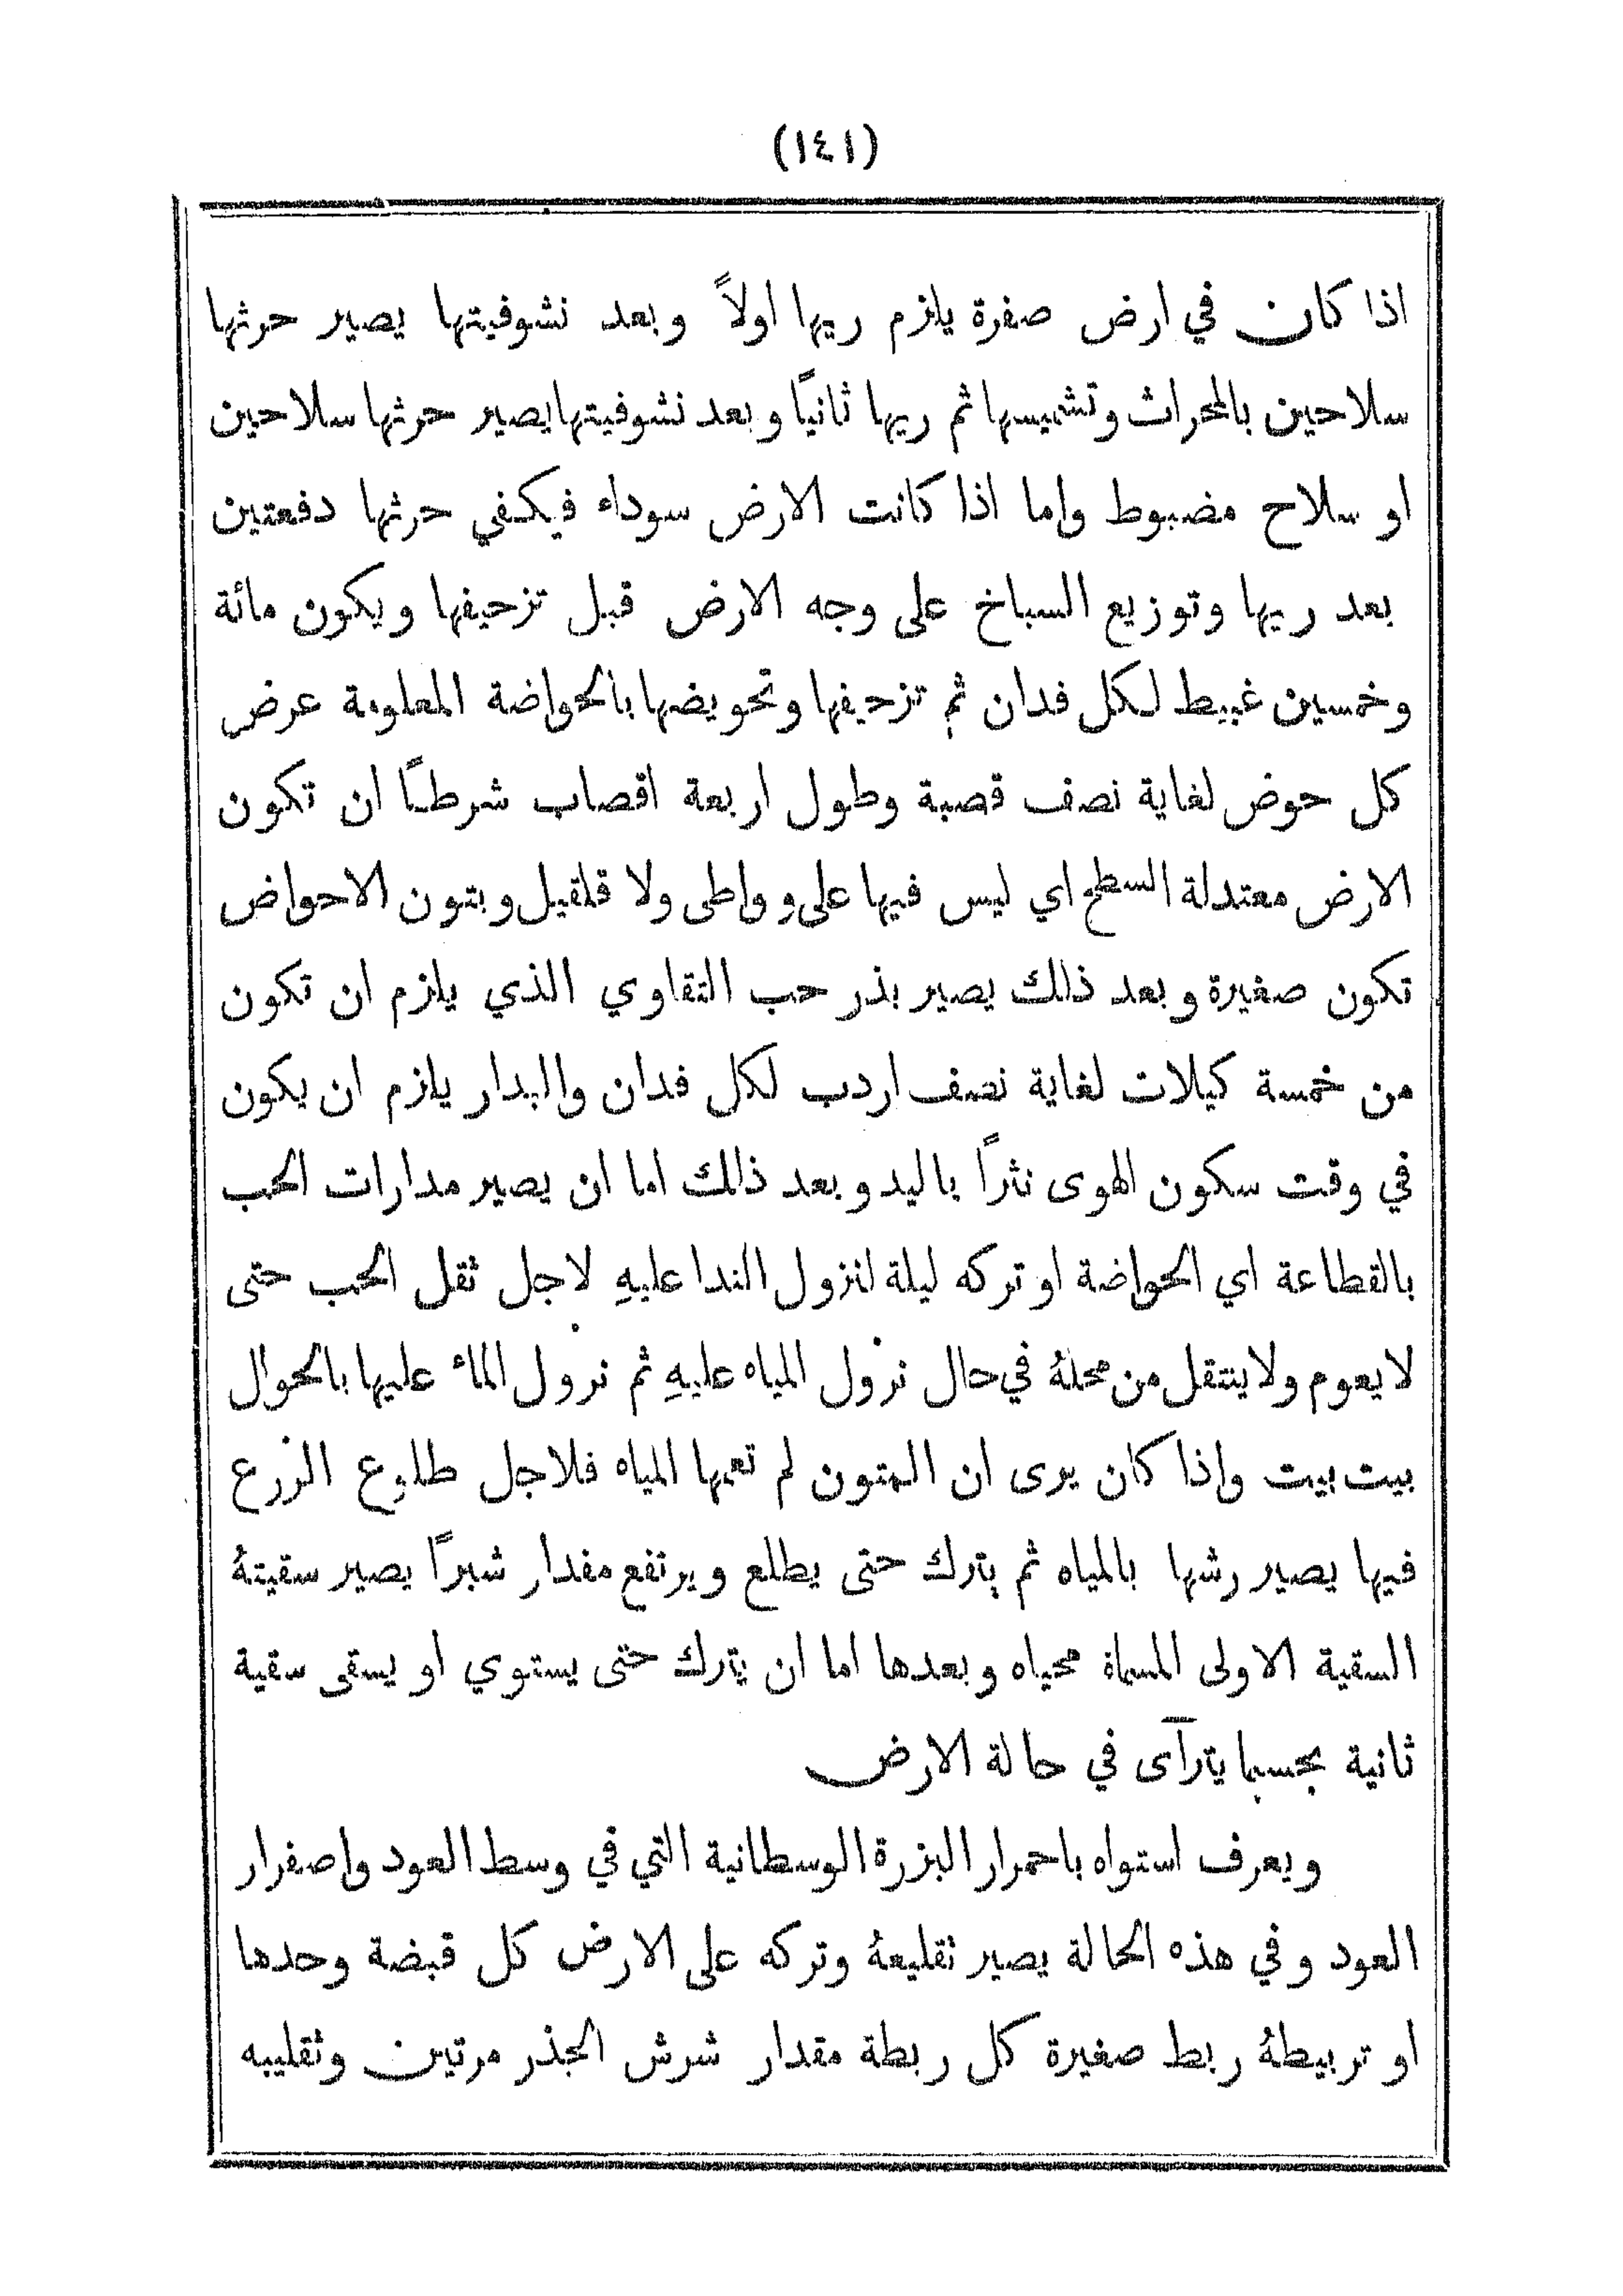 (١٤١)
اذا كان في ارض صفرة يلزم ريها اولاً وبعد نشوفيتها يصير حرثها
سلاحين بالمحراث وتشميسها ثم ريها ثانيًا وبعد نشوفيتها يصير حرثها سلاحين
او سلاح مضبوط واما اذا كانت الارض سوداء فيكفي حرثها دفعتين
بعد ريها وتوزيع السباخ على وجه الارض قبل تزحيفها ويكون مائة
وخمسين غبيط لكل فدان ثم تزحيفها وتحويضها بالحواضة المعلومة عرض
كل حوض لغاية نصف قصبة وطول اربعة اقصاب شرطًا ان تكون
الارض معتدلة السطح اي ليس فيها على و واطى ولا قلقيل وبتون الاحواض
تكون صغيرة وبعد ذلك يصير بذر حب التقاوي الذي يلزم ان تكون
من خمسة كيلات لغاية نصف اردب لكل فدان والبدار يلزم ان يكون
في وقت سكون الهوى نثرًا باليد وبعد ذلك اما ان يصير مدارات الحب
بالقطاعة اي الحواضة او تركه ليلة لنزول الندا عليهِ لاجل ثقل الحب حتى
لا يعوم ولا ينتقل من محلهُ في حال نزول المياه عليهِ ثم نزول الماء عليها بالحوال
بيت بيت واذا كان يرى ان المتون لم تعمها المياه فلاجل طلوع الزرع
فيها يصير رشها بالمياه ثم يترك حتى يطلع ويرتفع مقدار شبرًا يصير سقيتهُ
السقية الاولى المسماة محياه وبعدها اما ان يترك حتى يستوي او يسقى سقية
ثانية بحسبما يترآى في حالة الارض
ويعرف استواه باحمرار البزرة الوسطانية التي في وسط العود واصفرار
العود وفي هذه الحالة يصير تقليعهُ وتركه على الارض كل قبضة وحدها
او تربيطهُ ربط صغيرة كل ربطة مقدار شرش الجذر مرتين وتقليبه